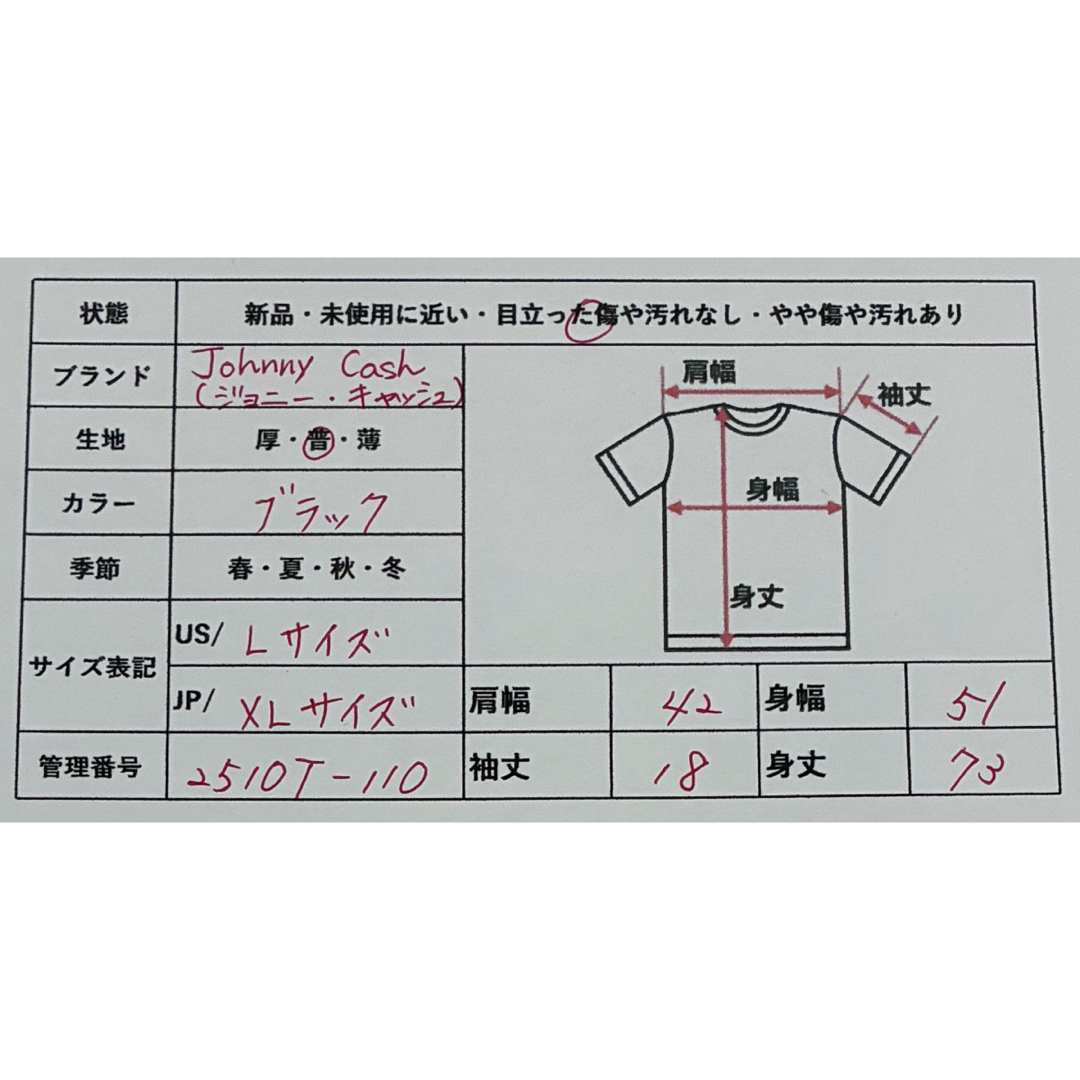 状態 新品・未使用に近い・目立った傷や汚れなし・やや傷や汚れあり
ブランド Johnny Cash
(ジョニー・キャッシュ)
生地 厚・普・薄
カラー ブラック
季節 春・夏・秋・冬
サイズ表記
US/ Lサイズ
JP/ XLサイズ
管理番号 2510T-110
肩幅
袖丈
身幅
身丈
肩幅 42 身幅 51
袖丈 18 身丈 73